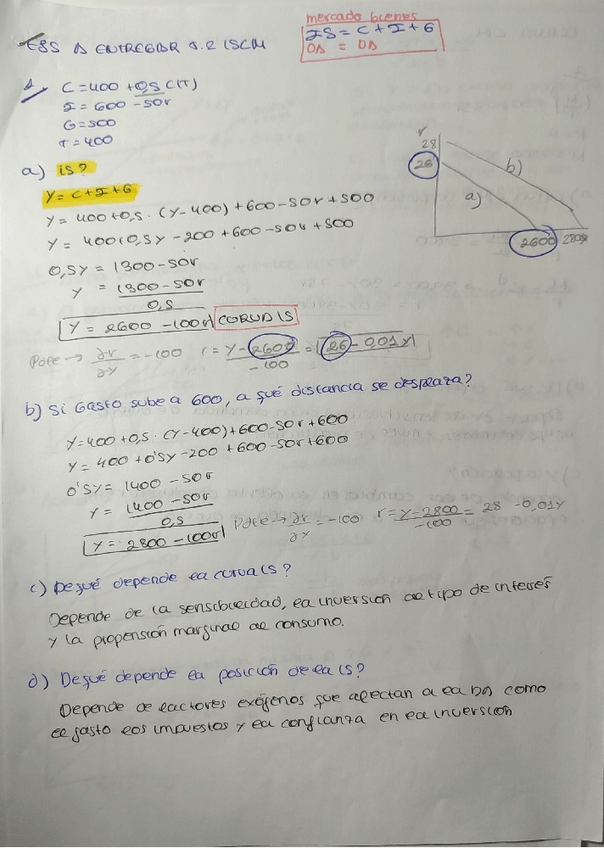 mercado bienes
IS = C + I + G
OA = DA
ESS A ENTREGAR 5.2 ISCM
1. C = 400 + 0,5 C(T)
I = 600 - 50r
G = 500
T = 400
a) is?
Y = C + I + G
Y = 400 + 0,5 · (Y - 400) + 600 - 50r + 500
Y = 400 + 0,5Y - 200 + 600 - 50r + 500
0,5Y = 1300 - 50r
Y = 1300 - 50r
0,5
Y = 2600 - 100r CURVA IS
Pdte → ∂r/∂y = -100 r = Y - 2600 / -100 = 26 - 0,01Y
r
28
26
a)
b)
2600
2800
b) Si Gasto sube a 600, a qué distancia se desplaza?
Y = 400 + 0,5 · (Y - 400) + 600 - 50r + 600
Y = 400 + 0'5Y - 200 + 600 - 50r + 600
0'5Y = 1400 - 50r
Y = 1400 - 50r
0,5
Y = 2800 - 100r Pdte → ∂r/∂y = -100 r = Y - 2800 / -100 = 28 - 0,01Y
c) De qué depende la curva IS?
Depende de la sensibilidad, la inversión al tipo de interés
y la propensión marginal al consumo.
d) De qué depende la posición de la IS?
Depende de factores exógenos que afectan a la DA como
el gasto los impuestos y la confianza en la inversión